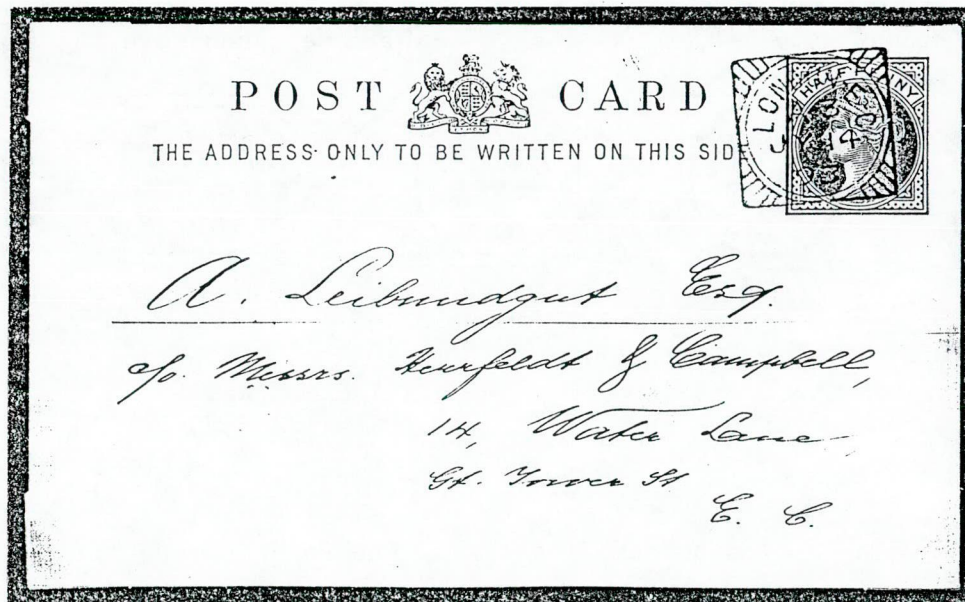 POST CARD
THE ADDRESS ONLY TO BE WRITTEN ON THIS SIDE
HALF NNY
LON
14
A. Leibundgut Esq.
c/o. Messrs. Herrfeldt & Campbell,
14, Water Lane
Gt. Tower St
E. C.